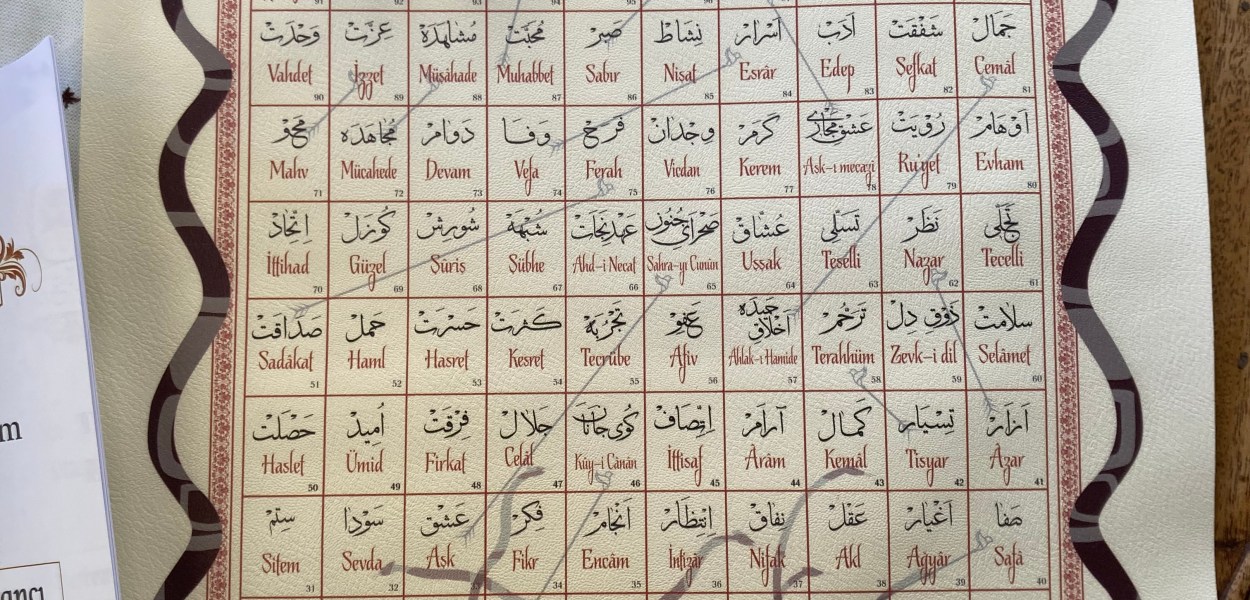 91 92 93 94 95 96
وحدت عزت مشاهده محبت صبر نشاط اسرار ادب شفقت جمال
Vahdet İzzet Müşâhade Muhabbet Sabır Nişat Esrâr Edep Şefkat Cemâl
90 89 88 87 86 85 84 83 82 81
محو مجاهده دوام وفا فرح وجدان كرم عشق مجازى رؤيت اوهام
Mahv Mücahede Devam Vefa Ferah Vicdan Kerem Aşk-ı mecazi Ru'yet Evham
71 72 73 74 75 76 77 78 79 80
اتحاد كوزل شورش شبهه عهد نجات صحراى جنون عشاق تسلى نظر تجلى
İttihad Güzel Şûriş Şübhe Ahd-i Necat Sahra-yı Cunûn Uşşak Teselli Nazar Tecelli
70 69 68 67 66 65 64 63 62 61
صداقت حمل حسرت كثرت تجربه عفو اخلاق حميده ترحم ذوق دل سلامت
Sadâkat Haml Hasret Kesret Tecrübe Afiv Ahlak-ı Hamide Terahhüm Zevk-i dil Selâmet
51 52 53 54 55 56 57 58 59 60
خصلت اميد فرقت جلال كوى جانان اتصاف آرام كمال تسيار آزار
Haslet Ümid Firkat Celâl Kûy-i Cânân İttisaf Ârâm Kemâl Tisyar Âzar
50 49 48 47 46 45 44 43 42 41
ستم سودا عشق فكر انجام انتظار نفاق عقل اغيار صفا
Sitem Sevda Aşk Fikr Encâm İntizâr Nifak Akl Agyâr Safâ
31 32 33 34 35 36 37 38 39 40
m
ancı